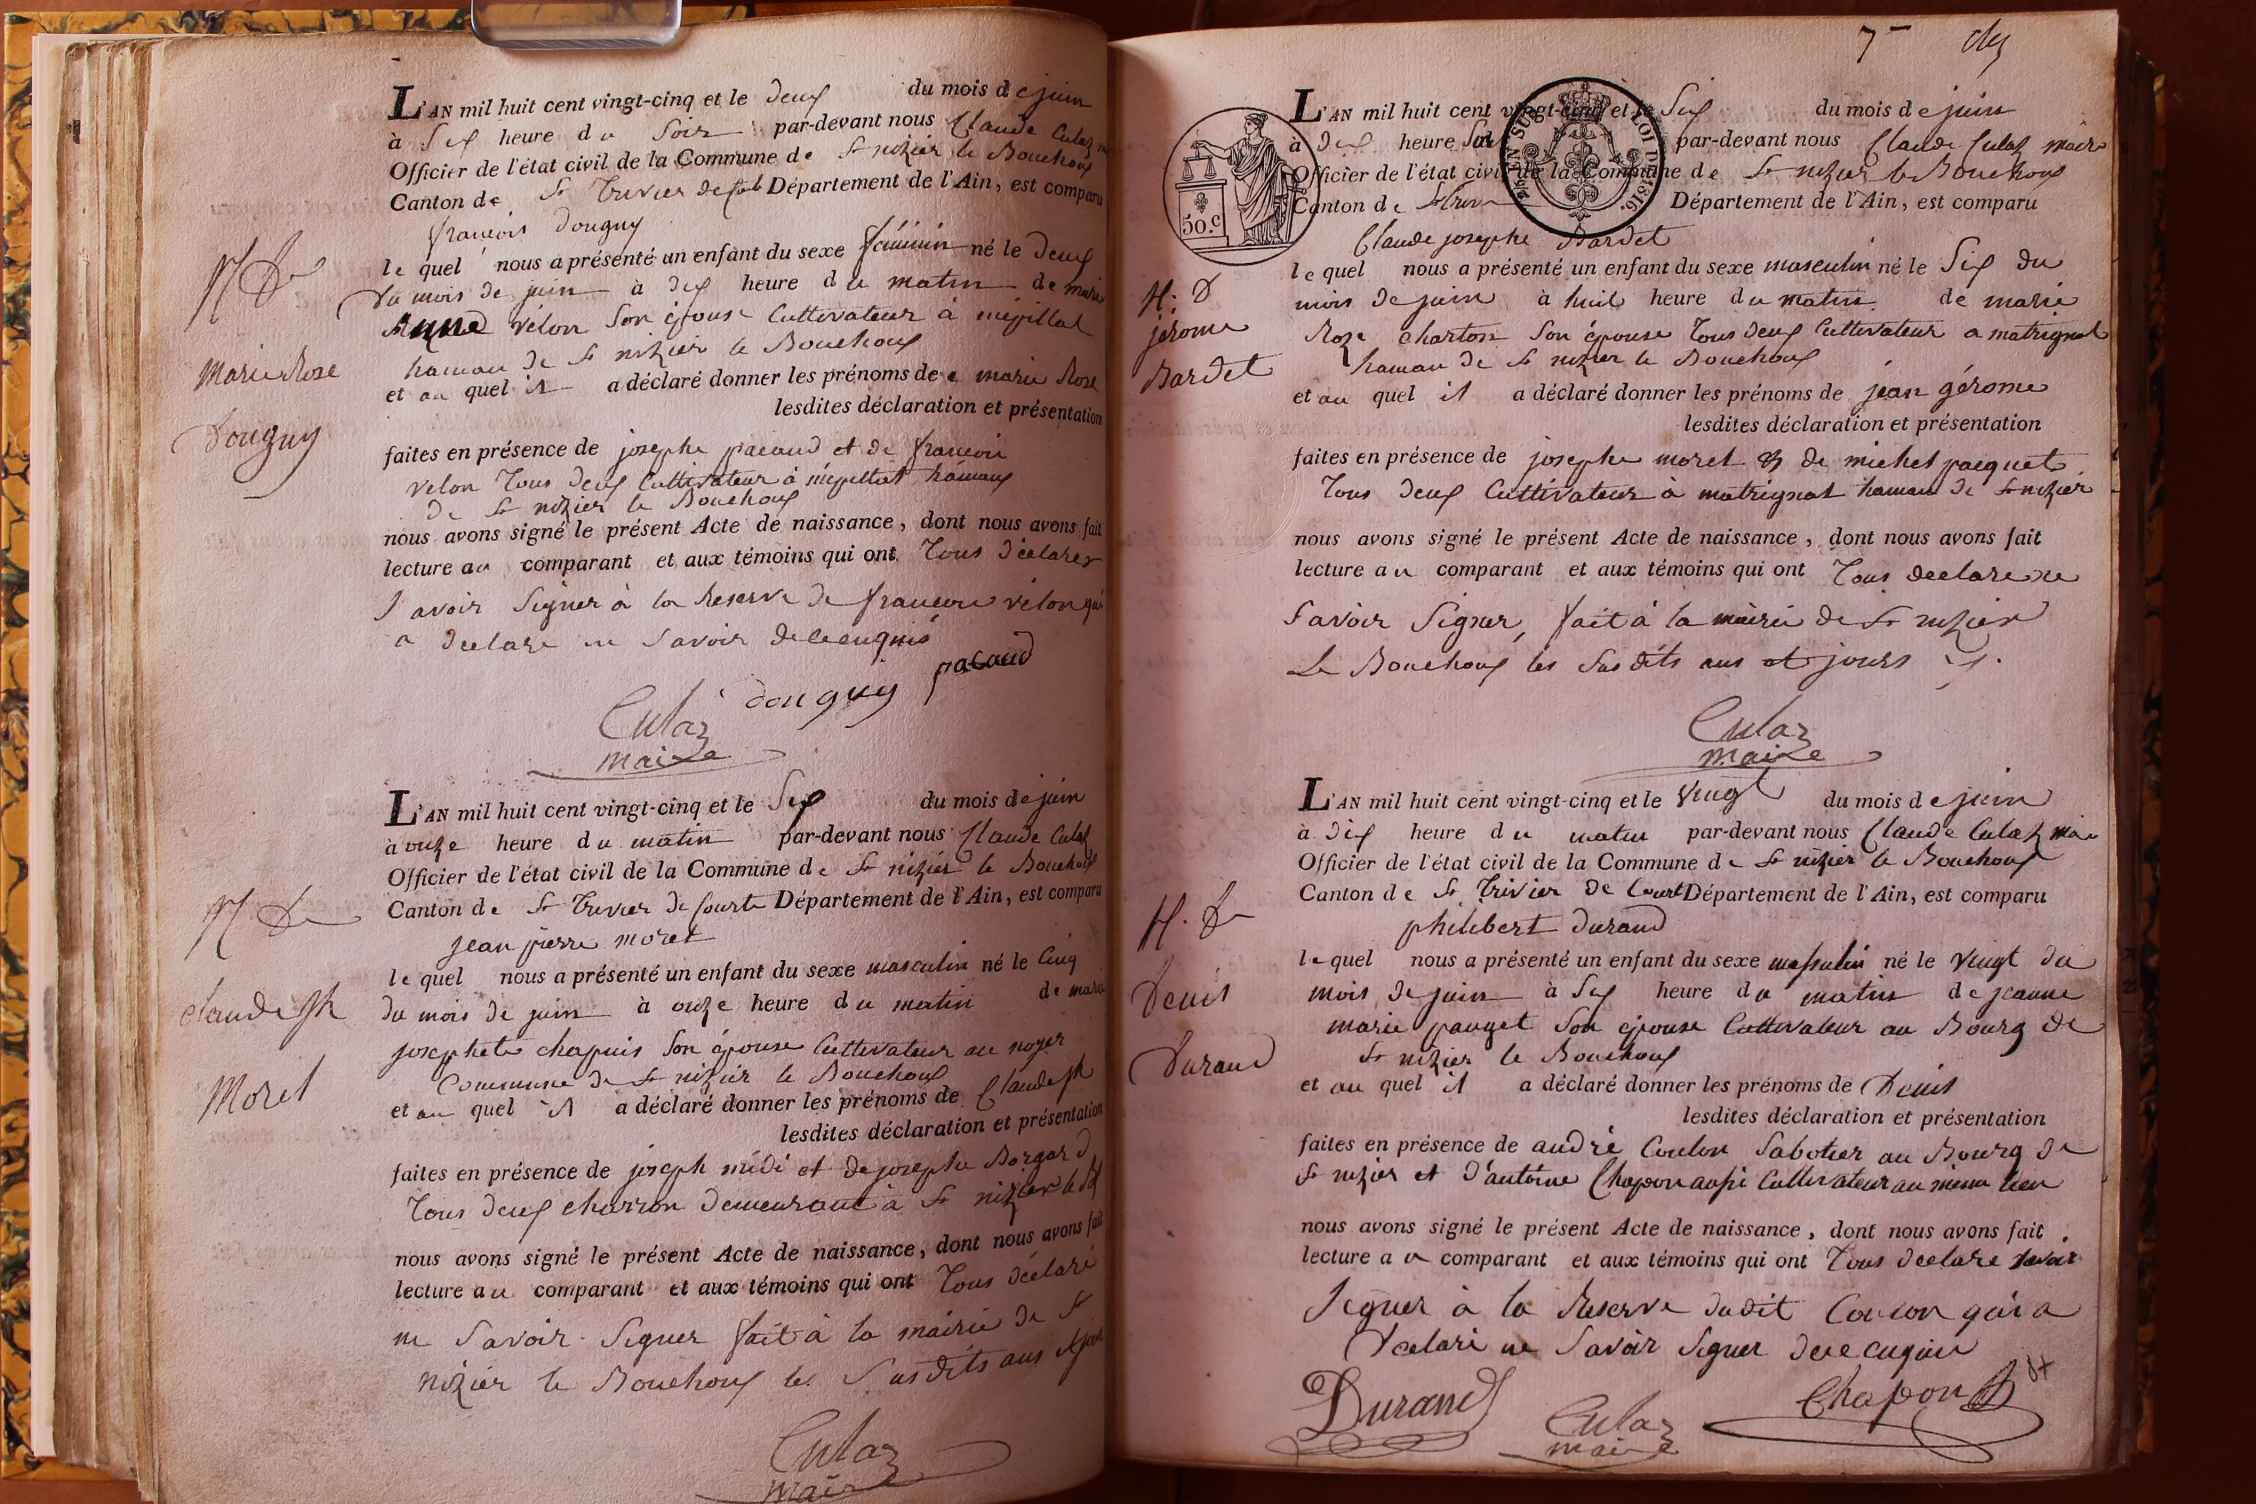 L'AN mil huit cent vingt-cinq et le deux du mois de juin
à Six heure du Soir par-devant nous Claude Culaz
Officier de l'état civil de la Commune de St nizier le Bouchoux
Canton de St Trivier de Département de l'Ain, est comparu
françois Douguy
le quel nous a présenté un enfant du sexe féminin né le Deux
du mois de juin à dix heure du matin de marie
Anne vélon Son épouse Cultivateur à mépillat
hamau de St nizier le Bouchoux
et au quel il a déclaré donner les prénoms de marie Rose
lesdites déclaration et présentation
faites en présence de josephe pacaud et de françois
velon Tous deux Cultivateur à mépillat hamaux
de St nizier le Bouchoux
nous avons signé le présent Acte de naissance, dont nous avons fait
lecture au comparant et aux témoins qui ont Tous déclarer
Savoir Signer à la Reserve de françois vélon qui
a declare ne Savoir de ce enquis
pacaud
douguy
Culaz
maire
N De
Marie Rose
Douguy
L'AN mil huit cent vingt-cinq et le Six du mois de juin
à onze heure du matin par-devant nous Claude Culaz
Officier de l'état civil de la Commune de St nizier le Bouchoux
Canton de St Trivier de Courte Département de l'Ain, est comparu
jean pierre moret
le quel nous a présenté un enfant du sexe masculin né le Cinq
du mois de juin à onze heure du matin de marie
josephete chapuis Son épouse Cultivateur au noyer
Commune de St nizier le Bouchoux
et au quel il a déclaré donner les prénoms de Claude jh
lesdites déclaration et présentation
faites en présence de joseph midi et de josephe Borgard
Tous deux charron demeurant à St nizier le
nous avons signé le présent Acte de naissance, dont nous avons fait
lecture au comparant et aux témoins qui ont Tous déclaré
ne Savoir Signer fait à la mairie de St
nizier le Bouchoux les Susdits ans et jour
Culaz
maire
N De
Claude jh
Moret
7 -
50.c
LOI DE 1816.
L'AN mil huit cent vingt-cinq et le Six du mois de juin
à dix heure par-devant nous Claude Culaz maire
Officier de l'état civil de la Commune de St nizier le Bouchoux
Canton de St Département de l'Ain, est comparu
Claude josephe Bardet
le quel nous a présenté un enfant du sexe masculin né le Six du
mois de juin à huit heure du matin de marie
Roze charton Son épouse Tous deux Cultivateur a matrignat
hamau de St nizier le Bouchoux
et au quel il a déclaré donner les prénoms de jean gérome
lesdites déclaration et présentation
faites en présence de josephe moret & de michel pacquet
Tous deux Cultivateur à matrignat hamau de St nizier
nous avons signé le présent Acte de naissance, dont nous avons fait
lecture au comparant et aux témoins qui ont Tous declare ne
Savoir Signer, fait à la mairie de St nizier
Le Bouchoux les Susdits ans et jours
Culaz
maire
N: D
jérome
Bardet
L'AN mil huit cent vingt-cinq et le vingt du mois de juin
à dix heure du matin par-devant nous Claude Culaz maire
Officier de l'état civil de la Commune de St nizier le Bouchoux
Canton de St Trivier de Court Département de l'Ain, est comparu
philibert durand
le quel nous a présenté un enfant du sexe masculin né le vingt du
mois de juin à Six heure du matin de jeanne
marie pauget Son épouse Cultivateur au Bourg de
St nizier le Bouchoux
et au quel il a déclaré donner les prénoms de Denis
lesdites déclaration et présentation
faites en présence de andré Coulon Sabotier au Bourg de
St nizier et d'antoine Chapon aussi Cultivateur au même lieu
nous avons signé le présent Acte de naissance, dont nous avons fait
lecture au comparant et aux témoins qui ont Tous declare savoir
Signer à la Reserve dudit Coulon qui a
Declaré ne Savoir Signer de ce enquis
Durand
Culaz
maire
Chapon
N. De
Denis
Durand